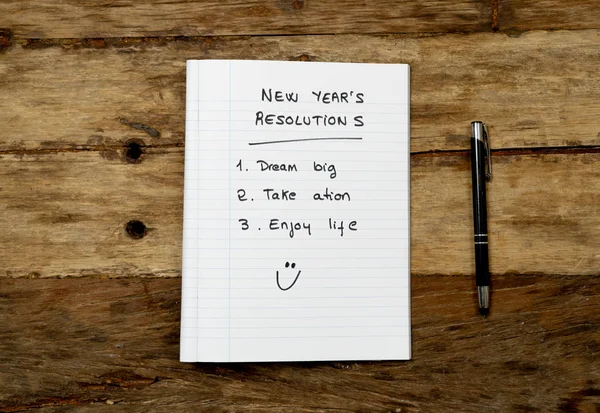 NEW YEAR'S
RESOLUTIONS
1. Dream big
2. Take ation
3. Enjoy life